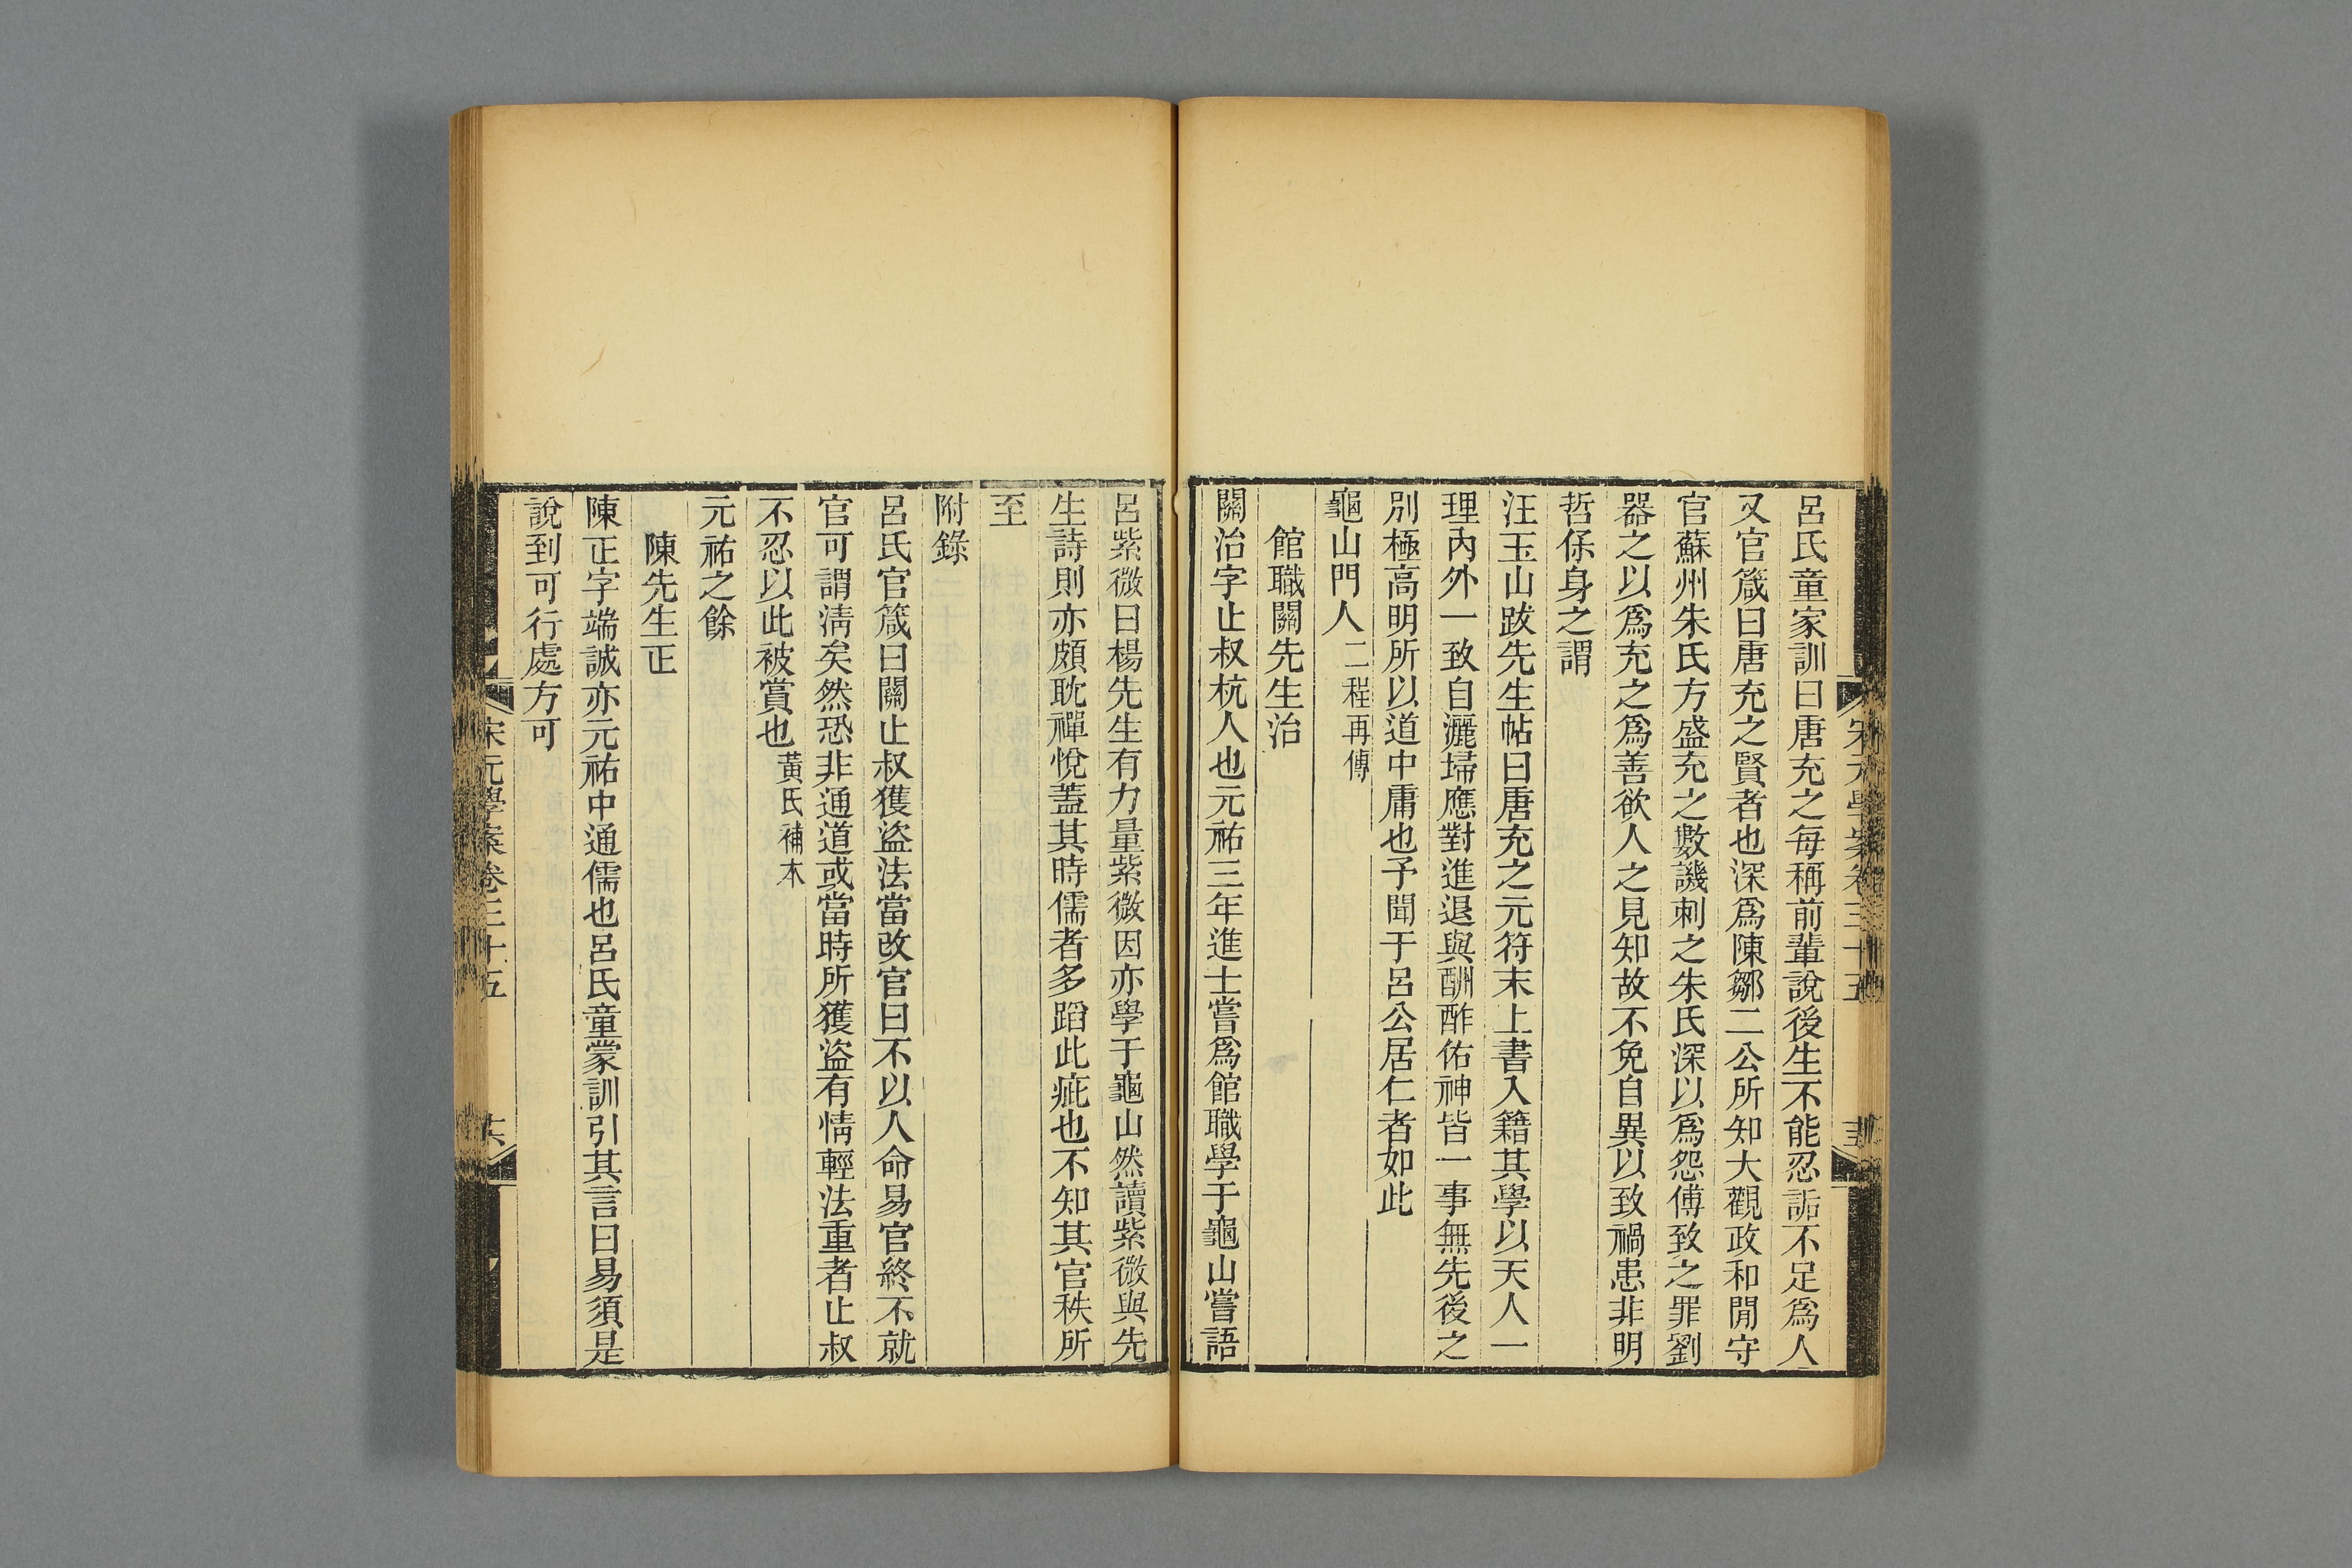 呂氏童家訓曰唐充之每稱前輩說後生不能忍詬不足爲人
又官箴曰唐充之賢者也深爲陳鄒二公所知大觀政和閒守
官蘇州朱氏方盛充之數譏刺之朱氏深以爲怨傅致之罪劉
器之以爲充之爲善欲人之見知故不免自異以致禍患非明
哲保身之謂
汪玉山跋先生帖曰唐充之元符末上書入籍其學以天人一
理內外一致自灑埽應對進退與酬酢佑神皆一事無先後之
別極高明所以道中庸也予聞于呂公居仁者如此
龜山門人二程再傳
館職關先生治
關治字止叔杭人也元祐三年進士嘗爲館職學于龜山嘗語
呂紫微曰楊先生有力量紫微因亦學于龜山然讀紫微與先
生詩則亦頗耽禪悅蓋其時儒者多蹈此疵也不知其官秩所
至
附錄
呂氏官箴曰關止叔獲盜法當改官曰不以人命易官終不就
官可謂淸矣然恐非通道或當時所獲盜有情輕法重者止叔
不忍以此被賞也黃氏補本
元祐之餘
陳先生正
陳正字端誠亦元祐中通儒也呂氏童蒙訓引其言曰易須是
說到可行處方可
宋元學案卷三十五